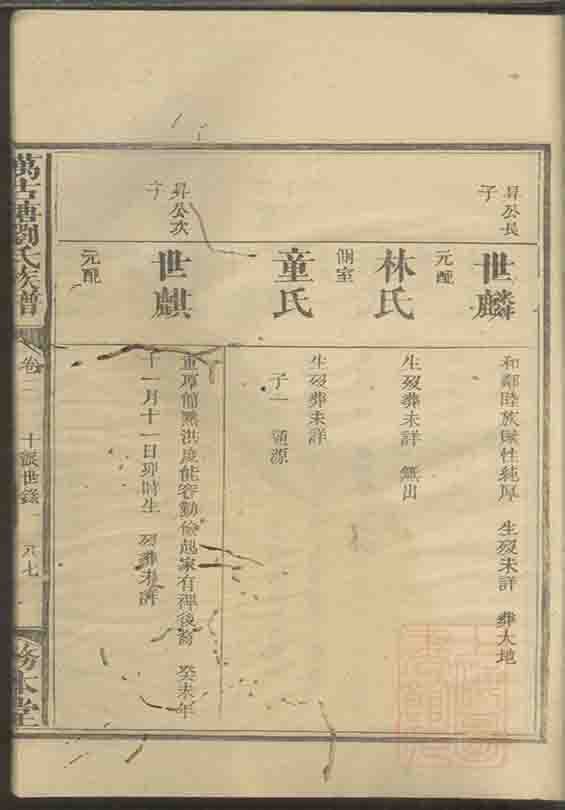 昇公長
子
世麟
和鄰睦族賦性純厚 生歿未詳 葬大地
元配
林氏
生歿葬未詳 無出
側室
童氏
生歿葬未詳
子一 源
昇公次
子
世麒
重厚簡默洪度能容勤儉起家有裨後裔 癸未年
十一月十一日卯時生 歿葬未詳
元配
萬古塘劉氏族譜
卷
十派世錄
務本堂